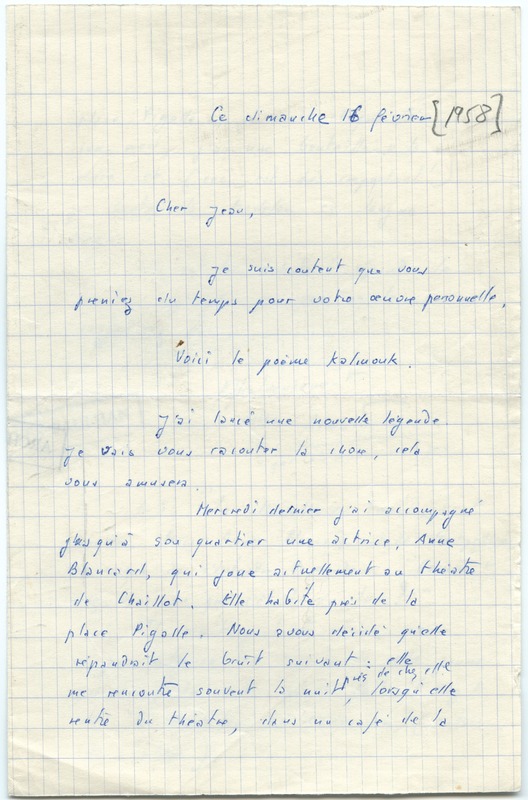 Ce dimanche 16 février [1958]
Cher Jean,
Je suis content que vous
preniez du temps pour votre œuvre personnelle.
Voici le poème Kalmouk.
J'ai lancé une nouvelle légende.
Je vais vous raconter la chose, cela
vous amusera.
Mercredi dernier j'ai accompagné
jusqu'à son quartier une actrice, Anne
Blancard, qui joue actuellement au théâtre
de Chaillot. Elle habite près de la
place Pigalle. Nous avons décidé qu'elle
répandrait le bruit suivant : elle
près de chez elle
me rencontre souvent la nuit, lorsqu'elle
rentre du théâtre, dans un café de la